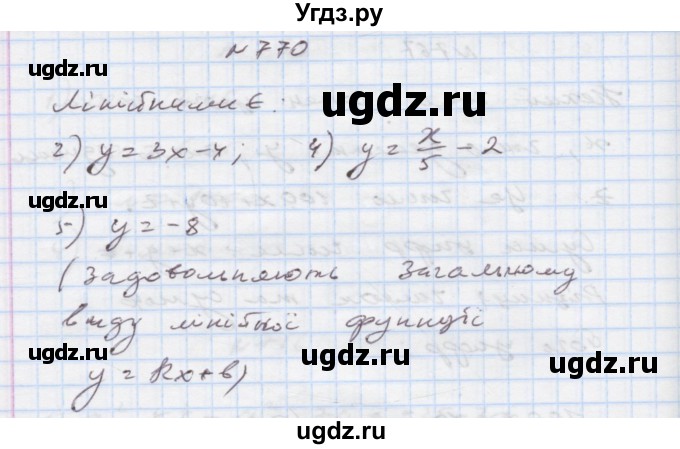 Угдз.ру
№770
ugdz.ru ugdz.ru
Лінійними є:
ugdz.ru
2) y = 3x - 4; 4) y = x/5 - 2
ugdz.ru ugdz.ru
5) y = -8
(Задовольняють загальному
виду лінійної функції
ugdz.ru ugdz.ru
y = kx + b)
ugdz.ru